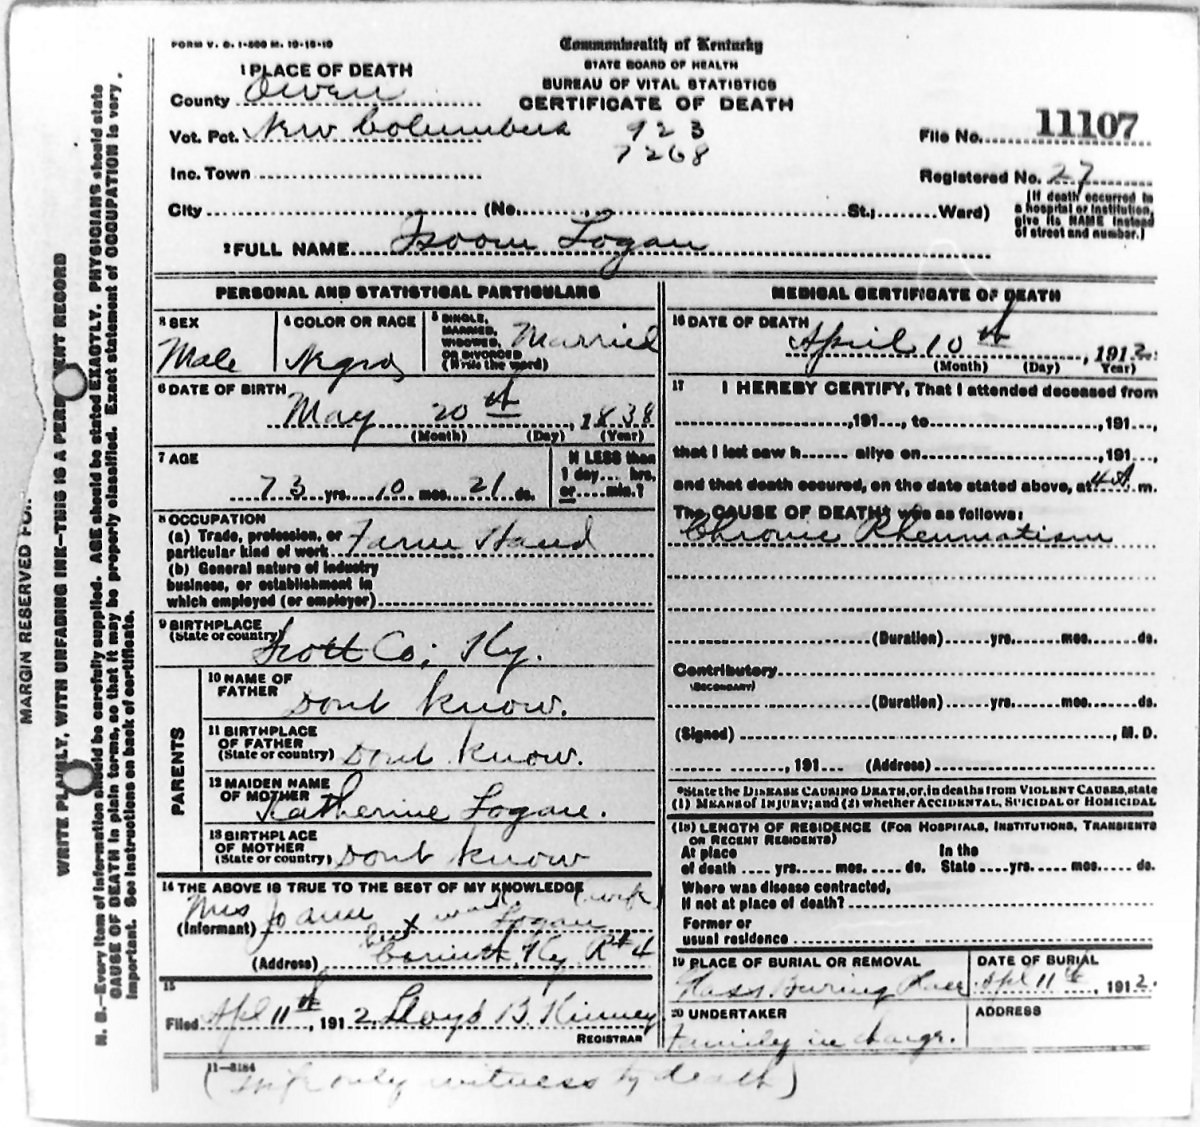 FORM V. S. 1-500 M. 10-15-10
Commonwealth of Kentucky
STATE BOARD OF HEALTH
BUREAU OF VITAL STATISTICS
CERTIFICATE OF DEATH
1 PLACE OF DEATH
County Owen
Vot. Pct. New Columbus 923
7268
File No. 11107
Inc. Town
Registered No. 27
City (No. St.; Ward)
(If death occurred in a hospital or institution, give its NAME instead of street and number.)
2 FULL NAME Isoom Logan
PERSONAL AND STATISTICAL PARTICULARS
3 SEX
Male
4 COLOR OR RACE
Negro
5 SINGLE, MARRIED, WIDOWED, OR DIVORCED (Write the word)
Married
6 DATE OF BIRTH
May 20th, 1838
(Month) (Day) (Year)
7 AGE
73 yrs. 10 mos. 21 ds.
If LESS than 1 day.... hrs. or.....min.?
8 OCCUPATION
(a) Trade, profession, or particular kind of work Farm Hand
(b) General nature of industry business, or establishment in which employed (or employer)
9 BIRTHPLACE
(State or country) Scott Co; Ky.
PARENTS
10 NAME OF FATHER Dont know.
11 BIRTHPLACE OF FATHER (State or country) Dont know.
12 MAIDEN NAME OF MOTHER Katherine Logan.
13 BIRTHPLACE OF MOTHER (State or country) Dont know
14 THE ABOVE IS TRUE TO THE BEST OF MY KNOWLEDGE
(wife)
(Informant) Mrs Jo anne x mark Logan
(Address) Corinth, Ky R#4
15
Filed Apl 11th, 1912 Lloyd B. Kinney
REGISTRAR
MEDICAL CERTIFICATE OF DEATH
16 DATE OF DEATH
April 10th, 1912
(Month) (Day) Year)
17 I HEREBY CERTIFY, That I attended deceased from
,191..., to ,191...,
that I last saw h...... alive on ,191...,
and that death occured, on the date stated above, at 4 A m.
The CAUSE OF DEATH* was as follows:
Chronic Rheumatism
(Duration) yrs. mos. ds.
Contributory
(SECONDARY)
(Duration) yrs. mos. ds.
(Signed) , M. D.
, 191... (Address)
*State the DISEASE CAUSING DEATH, or, in deaths from VIOLENT CAUSES, state
(1) MEANS of INJURY; and (2) whether ACCIDENTAL, SUICIDAL or HOMICIDAL
(18) LENGTH OF RESIDENCE (FOR HOSPITALS, INSTITUTIONS, TRANSIENTS
OR RECENT RESIDENTS)
At place of death .... yrs. mos. ds. In the State .... yrs. mos. ds.
Where was disease contracted,
If not at place of death?
Former or
usual residence
19 PLACE OF BURIAL OR REMOVAL
Buring
DATE OF BURIAL
Apl 11th, 1912.
20 UNDERTAKER
Family in charge.
ADDRESS
11-3184
(wife only witness to death)
MARGIN RESERVED FOR
WRITE PLAINLY, WITH UNFADING INK—THIS IS A PERMANENT RECORD
N. B.—Every item of information should be carefully supplied. AGE should be stated EXACTLY. PHYSICIANS should state
CAUSE OF DEATH in plain terms, so that it may be properly classified. Exact statement of OCCUPATION is very
important. See instructions on back of certificate.